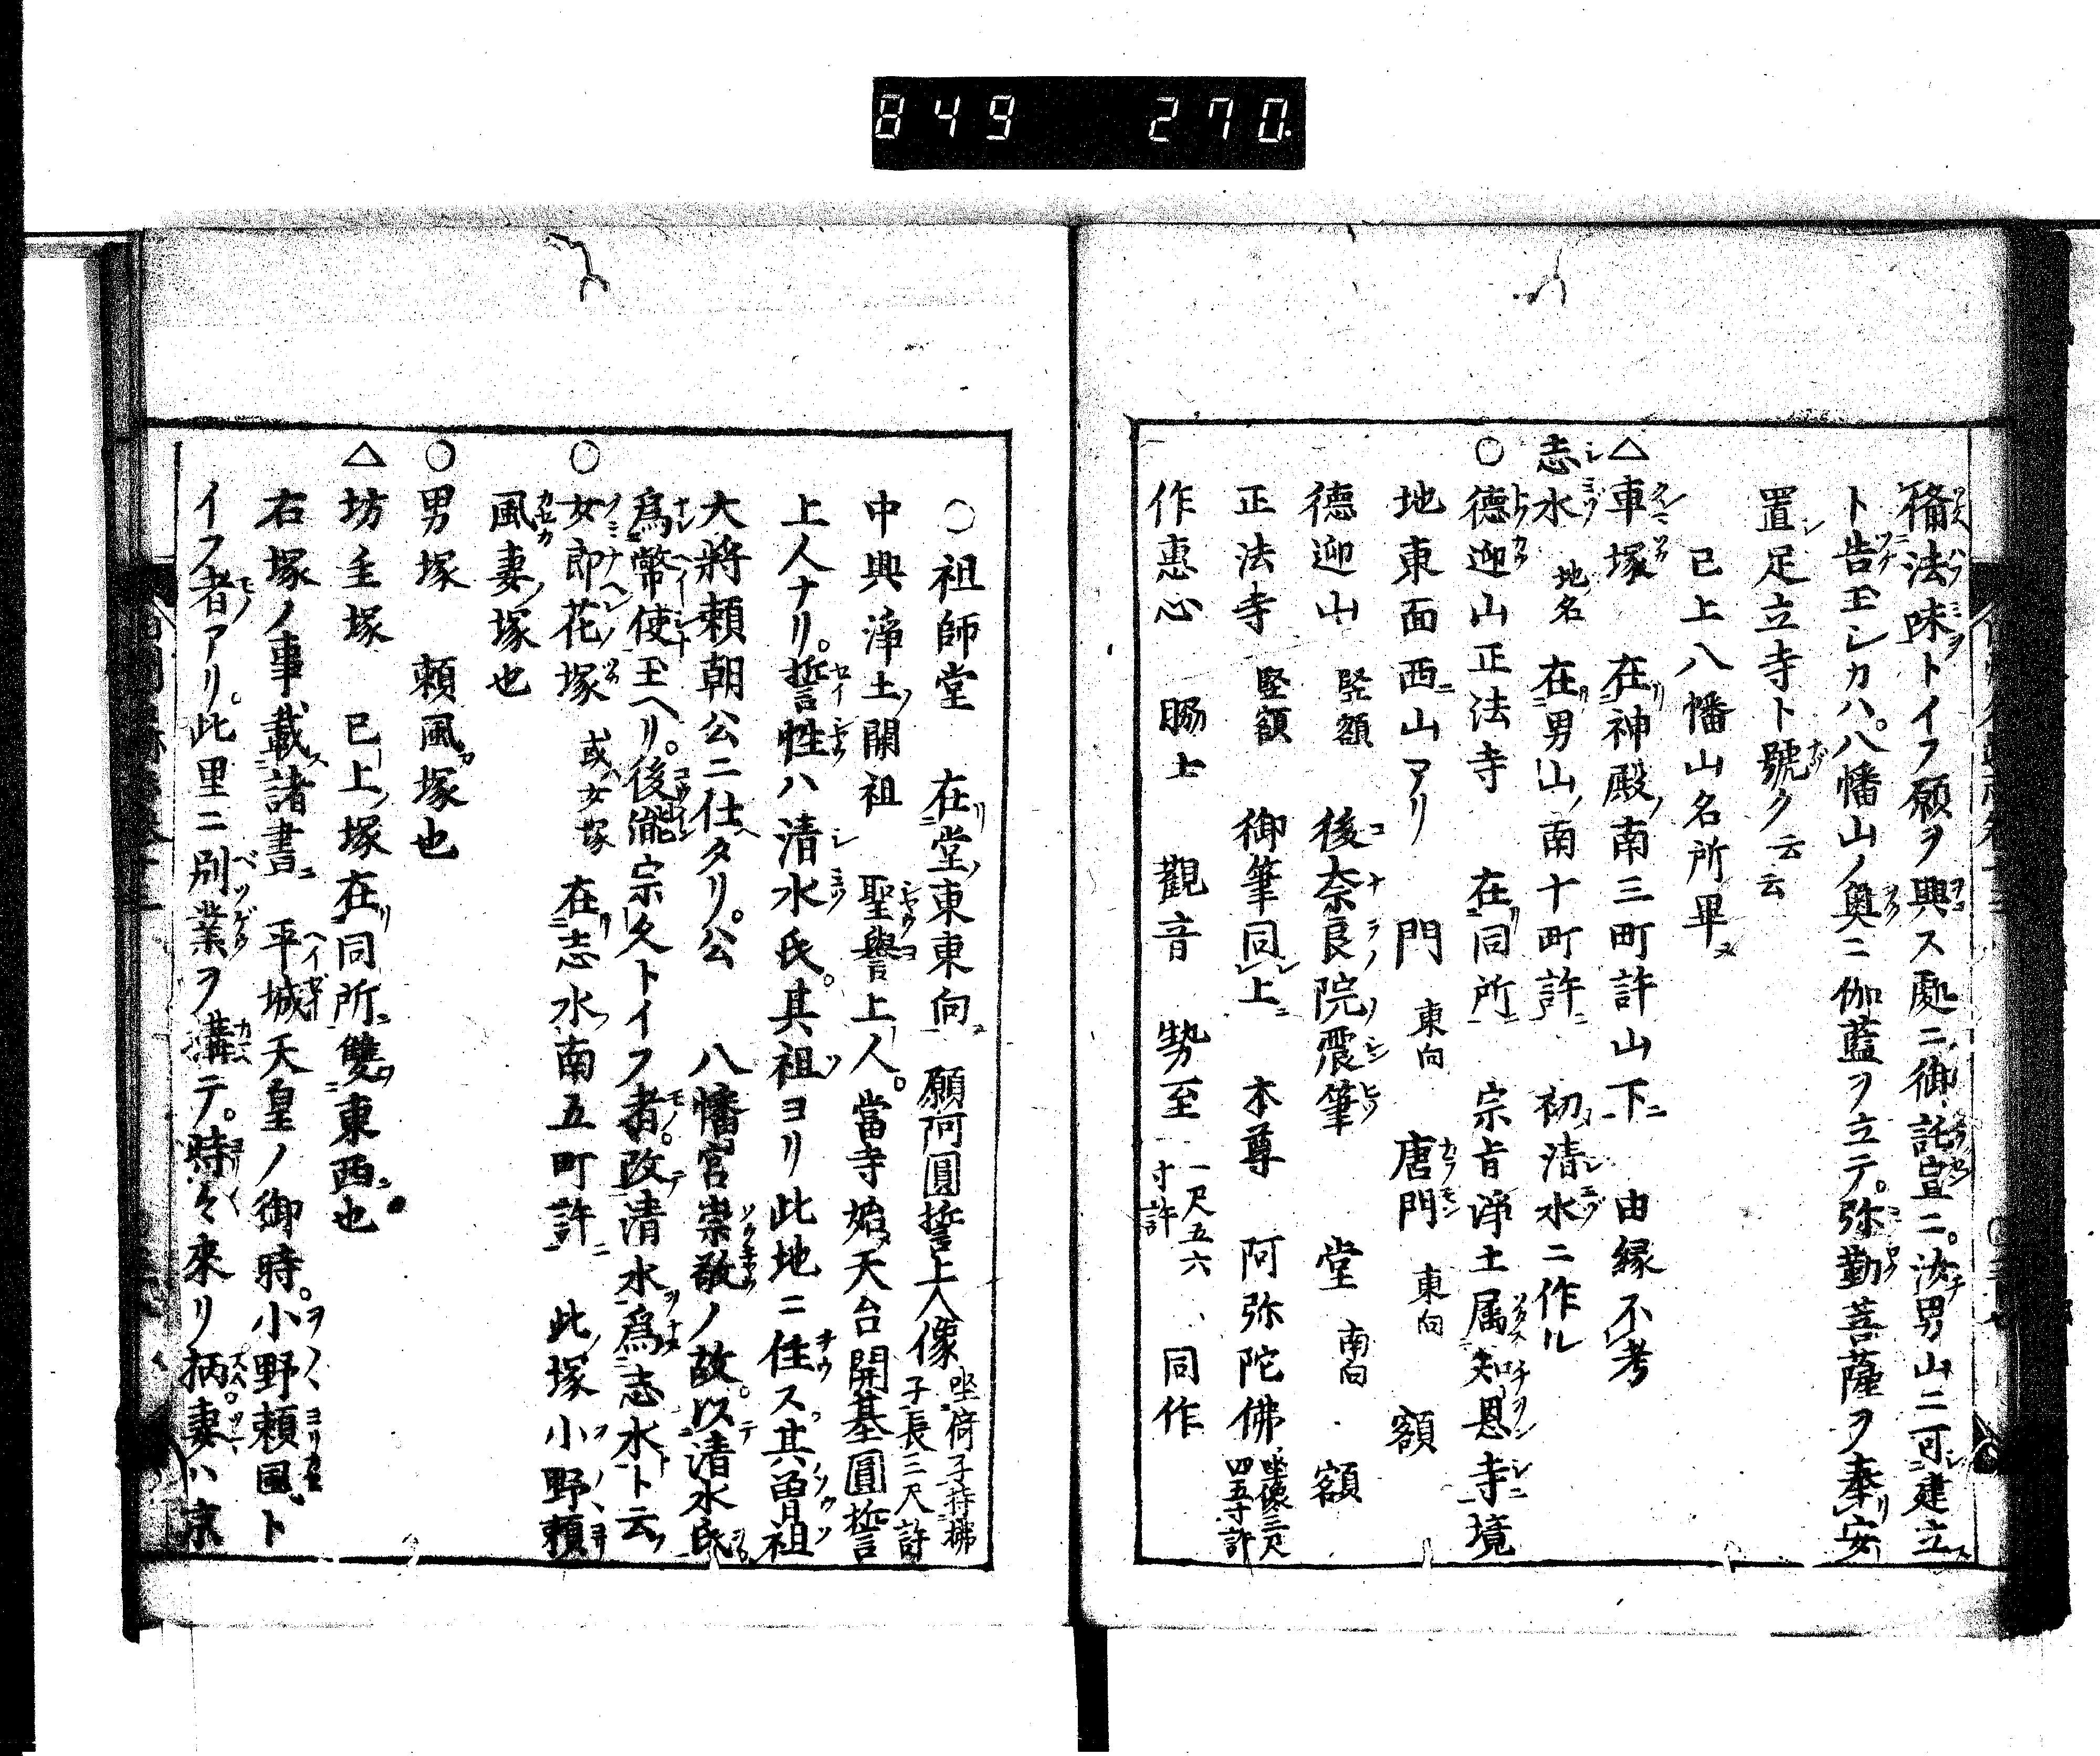 849 270.
脩法味トイフ願ヲ興ス處ニ御託宣ニ。汝男山ニ可建立
ト告玉シカハ。八幡山ノ奥ニ伽藍ヲ立テ。弥勒菩薩ヲ奉安
置足立寺ト號ク云云
已上八幡山名所畢
△車塚 在神殿南三町許山下 由縁不考
志水 地名 在男山南十町許 初清水ニ作ル
○德迎山正法寺 在同所 宗旨浄土属知恩寺境
地東面西山アリ 門 東向 唐門 東向 額
德迎山 竪額 後奈良院震筆 堂 南向 額
正法寺 竪額 御筆同上 本尊 阿弥陀佛 坐像三尺四五寸許
作惠心 脇士 觀音 勢至 一尺五六寸許 同作
○祖師堂 在堂東東向 願阿圓誓上人像 坐倚子持拂子長三尺許
中興浄土開祖 聖譽上人。當寺始天台開基圓誓
上人ナリ。誓性ハ清水氏。其祖ヨリ此地ニ住ス其曽祖
大將賴朝公ニ仕タリ。公 八幡宮崇敬ノ故。以清水氏
爲幣使玉ヘリ。後能宗久トイフ者。改清水爲志水ト云
○女郎花塚 或女塚 在志水南五町許 此塚小野賴
風妻塚也
○男塚 賴風塚也
△坊主塚 已上塚在同所雙東西也
右塚ノ事載諸書 平城天皇ノ御時。小野賴風ト
イフ者アリ。此里ニ別業ヲ構テ。時々來リ柄妻ハ京